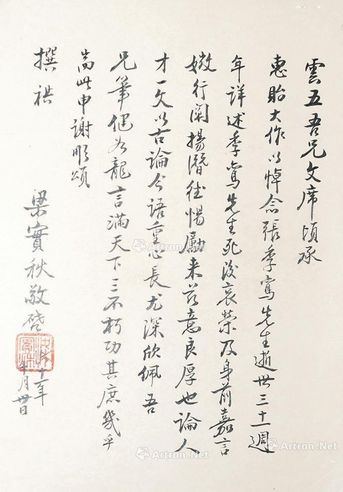 雲五吾兄文席頃承
惠贻大作以悼念張季鸞先生逝世三十一週
年詳述季鸞先生死後哀榮及身前嘉言
嫩行闡揚潛德惕勵来兹意良厚也論人
才一文以古論今語重心長尤深欣佩吾
兄筆健如龍言滿天下三不朽功其庶幾乎
耑此申谢順頌
撰祺
梁實秋敬啓
十一年
月廿日